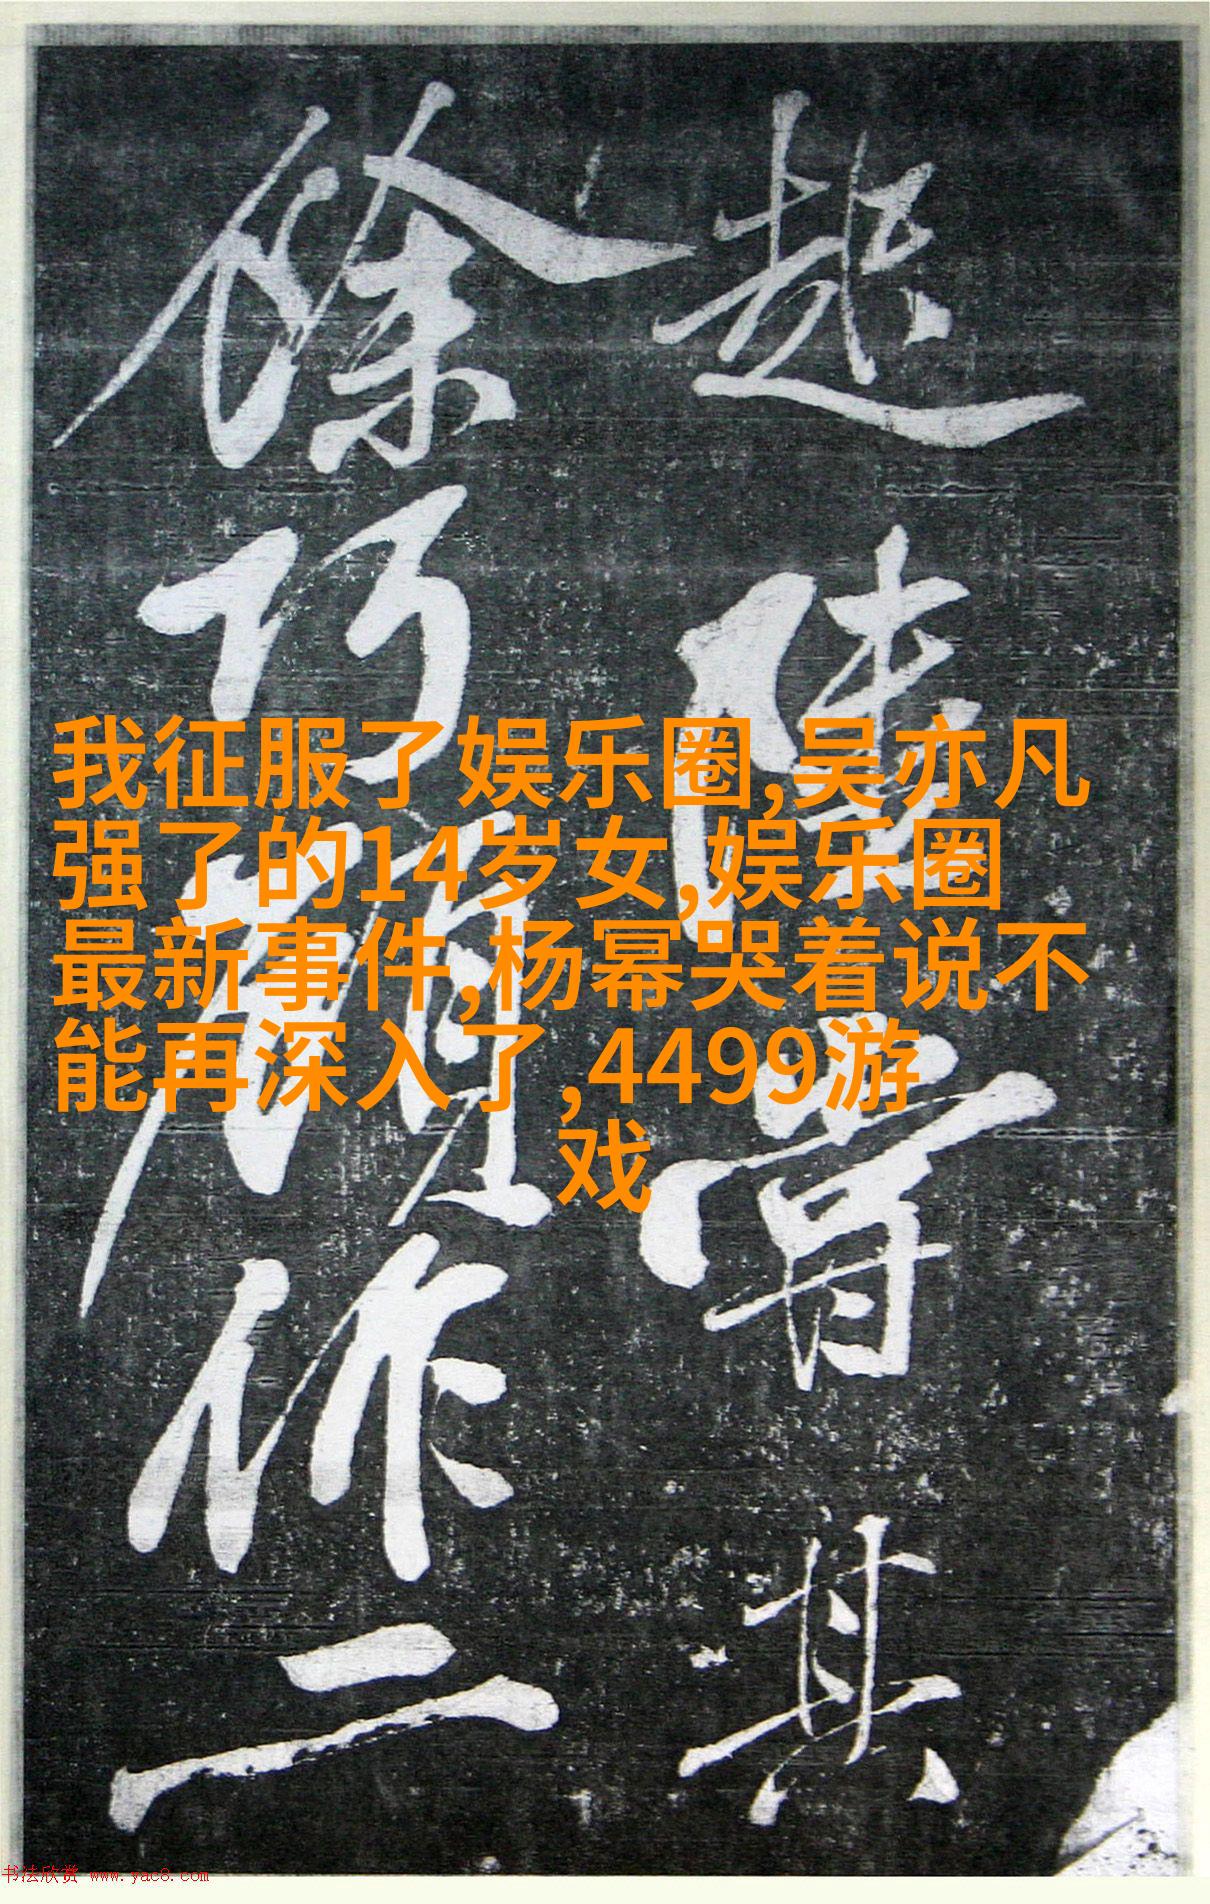 其
巧
作
二
我征服了娱乐圈,吴亦凡
强了的14岁女,娱乐圈
最新事件,杨幂哭着说不
能再深入了,4499游
戏
书法欣赏 www.yac8.com